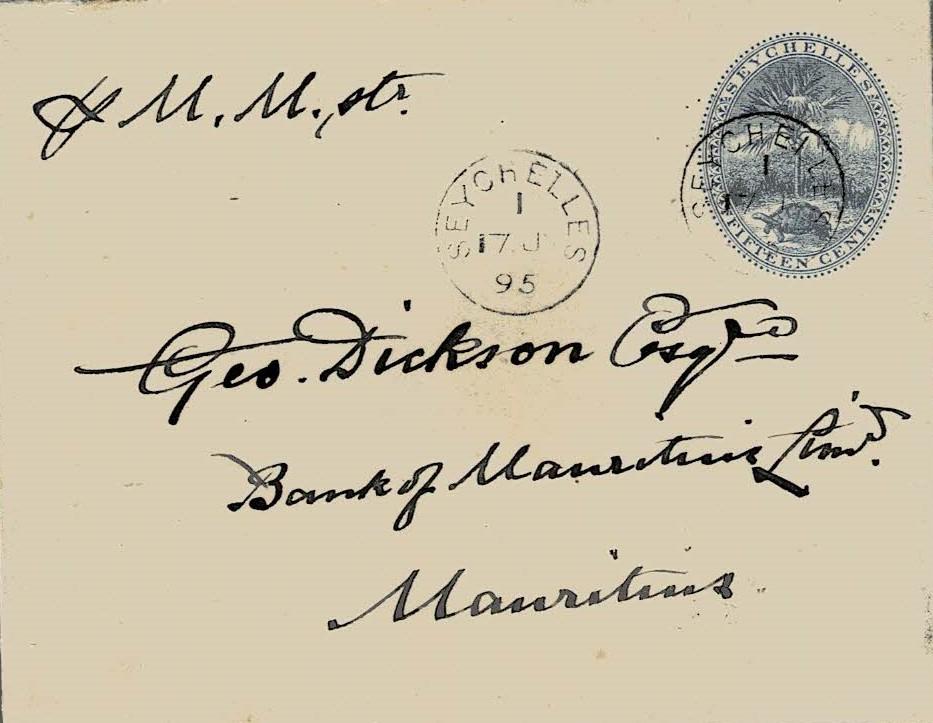 ⅌ M. M. str.
SEYCHELLES
FIFTEEN CENTS
SEYCHELLES
1
17
SEYCHELLES
1
17 J
95
Geo. Dickson Esqre
Bank of Mauritius Limd.
Mauritius